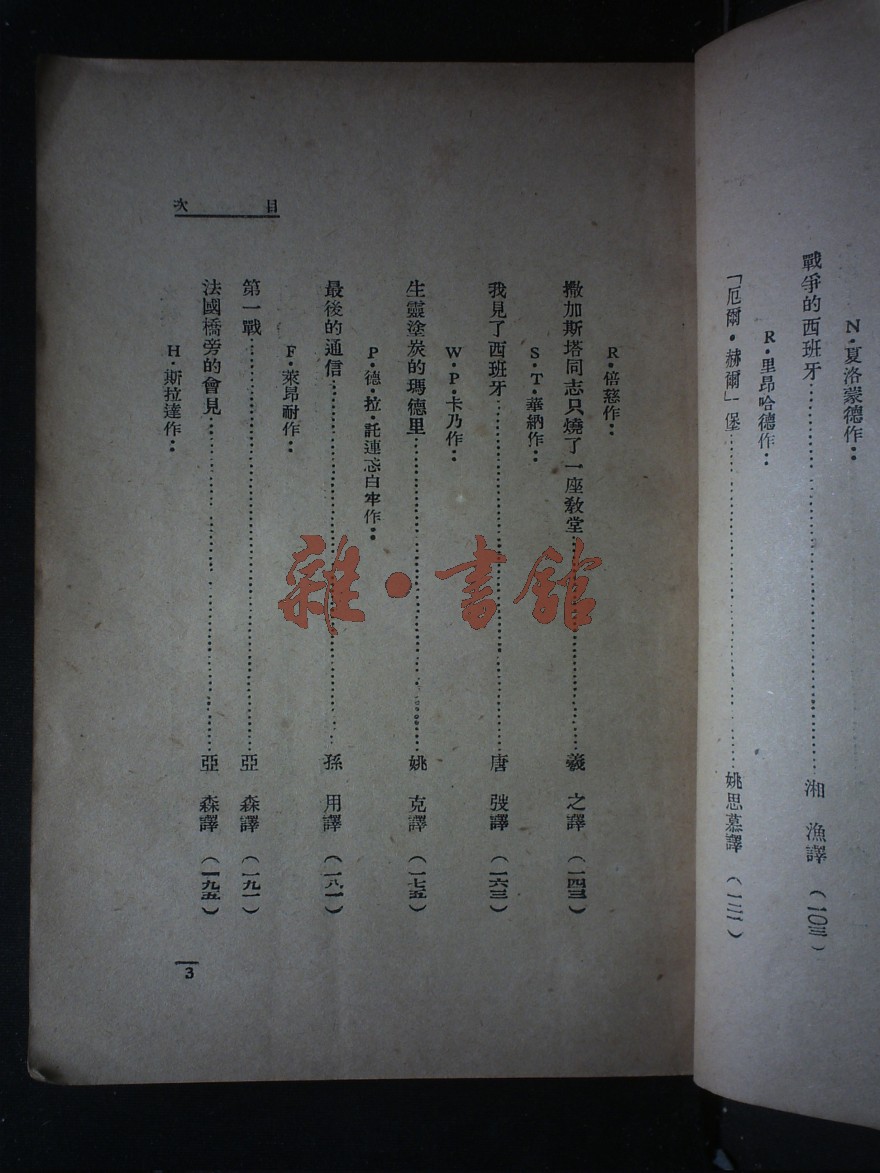 N·夏洛蒙德作：
戰爭的西班牙……湘　漁譯（一〇三）
R·里昂哈德作：
「厄爾·赫爾」堡……姚思慕譯（一二一）
目次
R·倍慈作：
撒加斯塔同志只燒了一座教堂……羲　之譯（一四三）
S·T·華納作：
我見了西班牙……唐　弢譯（一六三）
W·P·卡乃作：
生靈塗炭的瑪德里……姚　克譯（一七五）
P·德·拉·託連惑白牢作：
最後的通信……孫　用譯（一八一）
F·萊昂耐作：
第一戰……亞　森譯（一九一）
法國橋旁的會見……亞　森譯（一九五）
H·斯拉達作：
3
雜·書館